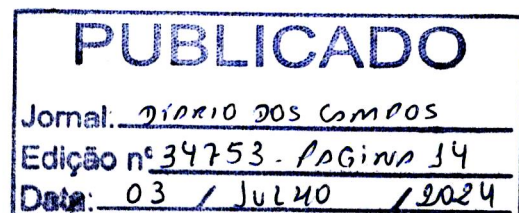 PUBLICADO
Jornal: DIÁRIO DOS CAMPOS
Edição nº 34753 - PAGINA 14
Data: 03 / JULHO / 2024